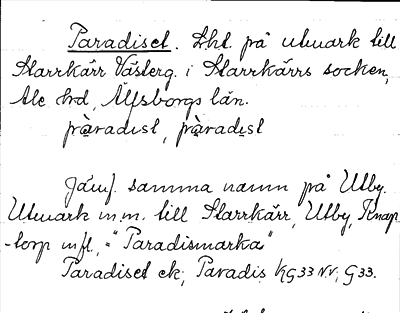 Paradiset. Lht. på utmark till
Starrkärr Västerg. i Starrkärrs socken,
Ale hrd, Älfsborgs län.
pàradisl, pàradisl
Jämf. samma namn på Utby.
Utmark m.m. till Starrkärr, Utby, Knap
-torp mfl, = "Paradismarka"
Paradiset ek; Paradis KG33 N.V; G33.